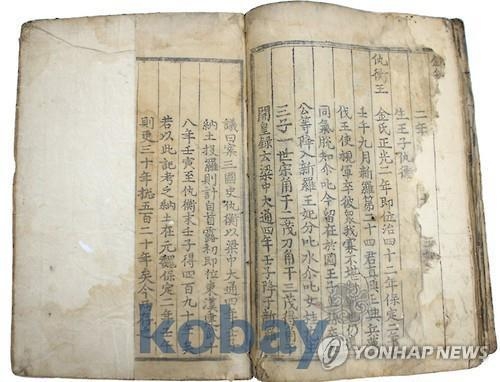 二年
生王子仇衡
仇衡王
金氏正光二年即位治四十二年保定二年
壬午九月新羅第二十四君真興王興兵
伐王使親軍卒彼衆我寡不堪
同氣脫知尒叱今留在於國王子上
公等降入新羅王妃分叱水尒叱女桂
三子一世宗角干二茂刀角干三茂得
開皇録云梁中大通四年壬子降于新
議曰案三國史仇衡以梁中大通四
納土投羅則計自首露初即位東漢建
八年壬寅至仇衡末壬子得四百九十
若以此記考之納土在元魏保定二年
則更三十年揔五百二十年矣今
kobay
YONHAP NEWS